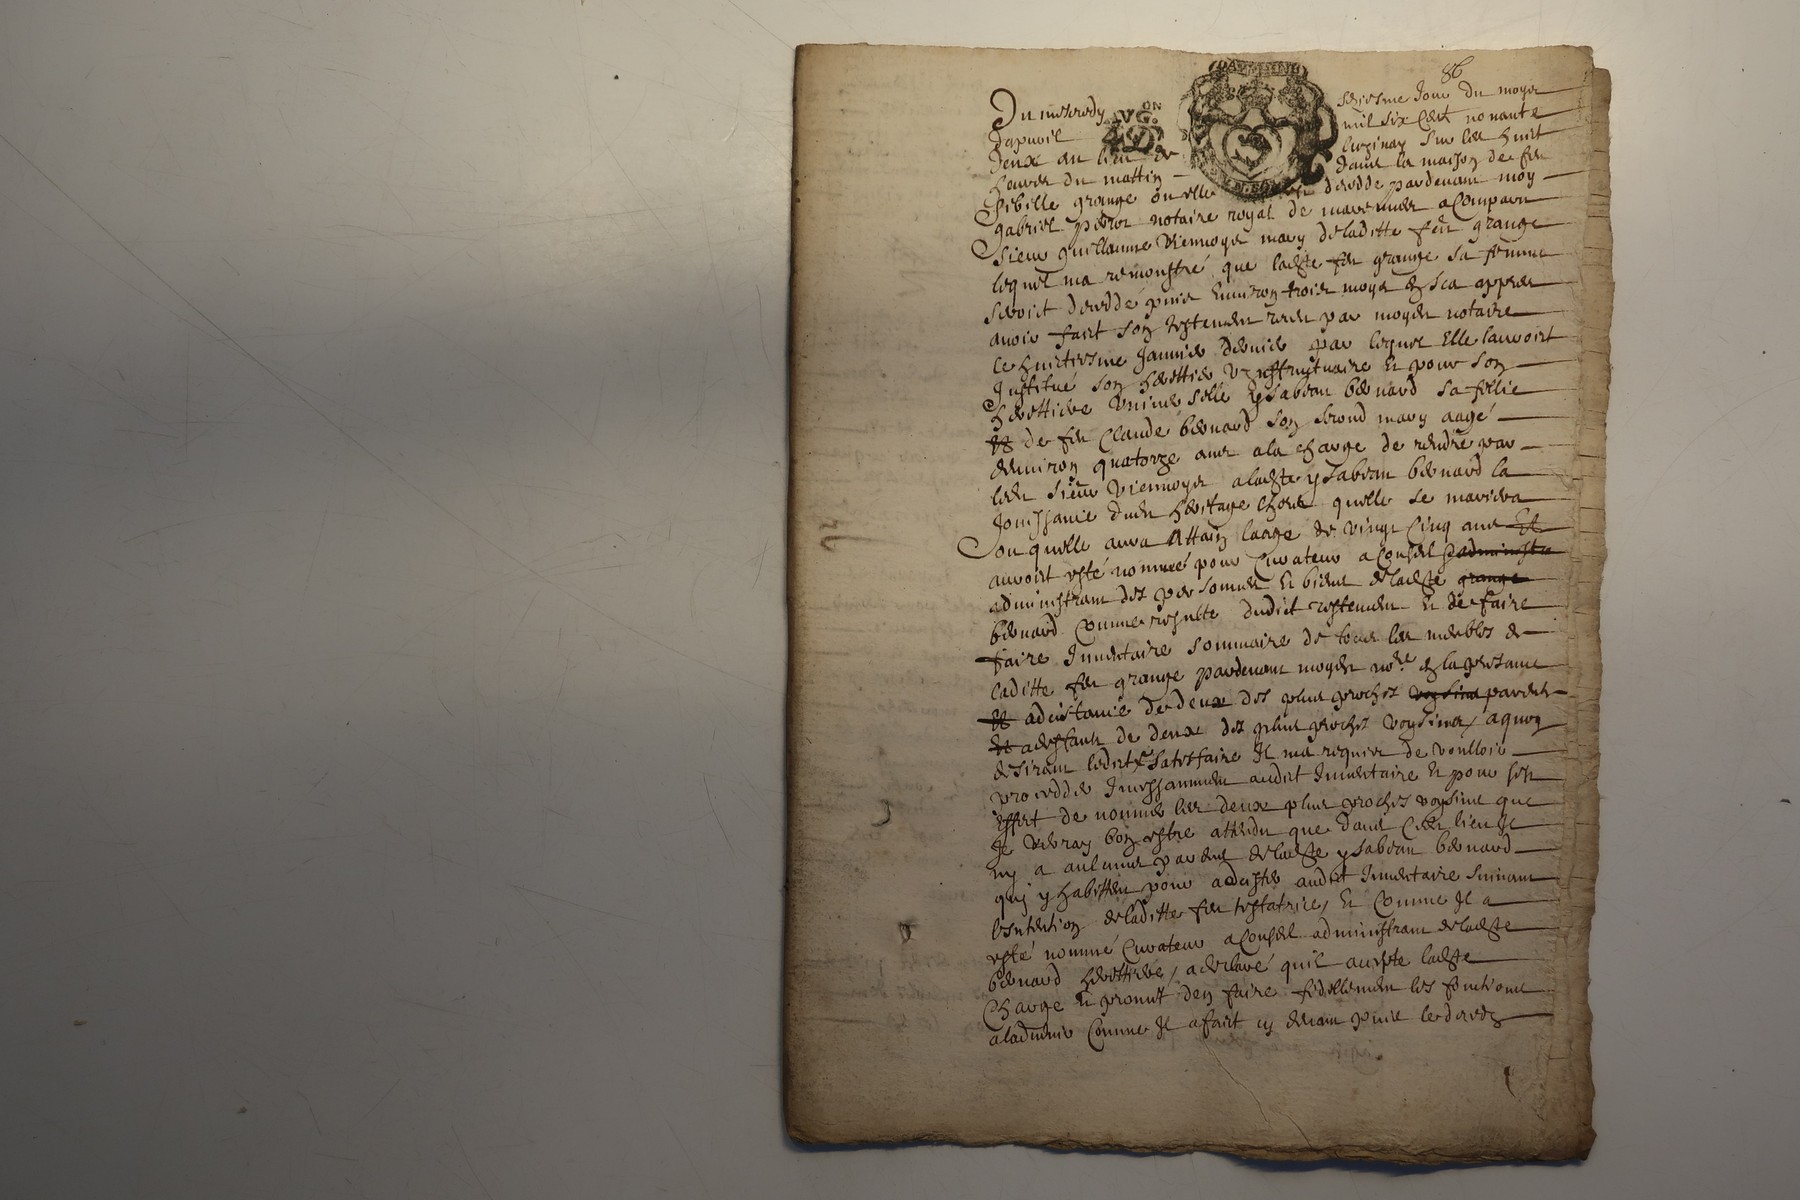 86
Du mecredy seiziesme Jour du moys
Dapvril mil six Cent nonante
deux au lieu de Luzinay Sur les huit
heures du mattin dans la maison de feu
Sibille grange ou elle est decedde pardevant moy
gabriel notaire royal de marennes a Comparu
Sieur guillaume Viennoys mary de laditte feu grange
lequel ma remonstré que ladte feu grange sa femme
seroit decedde puis Environ trois moys En sca appres
avoir fait son testement par moydit notaire
le huictiesme Janvier dernier par lequel Elle lauroit
Institué son herittier Uzuffructuaire Et pour son
herittiere Universelle Ysabeau bernard sa fillie
de feu Claude bernard son second mary aagé
denviron quatorze ans a la charge de rendre par
ledit Sieur Viennoys a ladte ysabeau bernard la
Jouissance dudit heritage lhors quelle se mariera
ou quelle aura Attain laage de vingt Cinq ans Et
auroit esté nommé pour Curateur a Conseil
administrant des personnes Et biens de ladte grange
bernard Comme resulte dudict testement Et de faire
faire Inventaire sommaire de tous les meubles de
laditte feu grange pardevant moydit nore En la presance
Et adcistance de deux des plus proches voysins parents
Et a deffaut de deux des plus proches voysins, a quoy
desirant ledict Satisfaire Il ma requier de voulloir
procedder Incessamment audit Inventaire Et pour cest
Effect de nommer les deux plus proches voysins que
Je verray bon estre attendu que dans Ce lieu Il
ny a aulcuns parents de ladte ysabeau bernard
quj y habittent pour adcister audit Inventaire suivant
lintention de laditte feu testatrice, Et Comme Il a
esté nommé Curateur a Conseil administrant de ladte
bernard herittiere, a declaré quil accepte ladte
Charge Et promet den faire fidellement les fonctions
a ladvenir Comme Il a fait cy devant puis le decedz